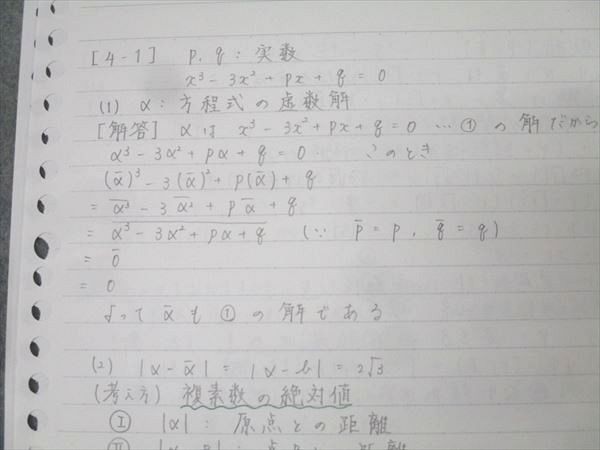 [4-1] p, q : 実数
x³ - 3x² + px + q = 0
(1) α : 方程式の虚数解
[解答] α は x³ - 3x² + px + q = 0 … ① の解だから
α³ - 3α² + pα + q = 0. このとき
(ᾱ)³ - 3(ᾱ)² + p(ᾱ) + q
= \overline{α³} - 3\overline{α²} + p\overline{α} + q
= \overline{α³ - 3α² + pα + q} (∵ p̄ = p, q̄ = q)
= 0̄
= 0
よって ᾱ も ① の解である
(2) |α - ᾱ| = |α - b| = 2√3
(考え方) 複素数の絶対値
Ⅰ |α| : 原点との距離
Ⅱ 距離